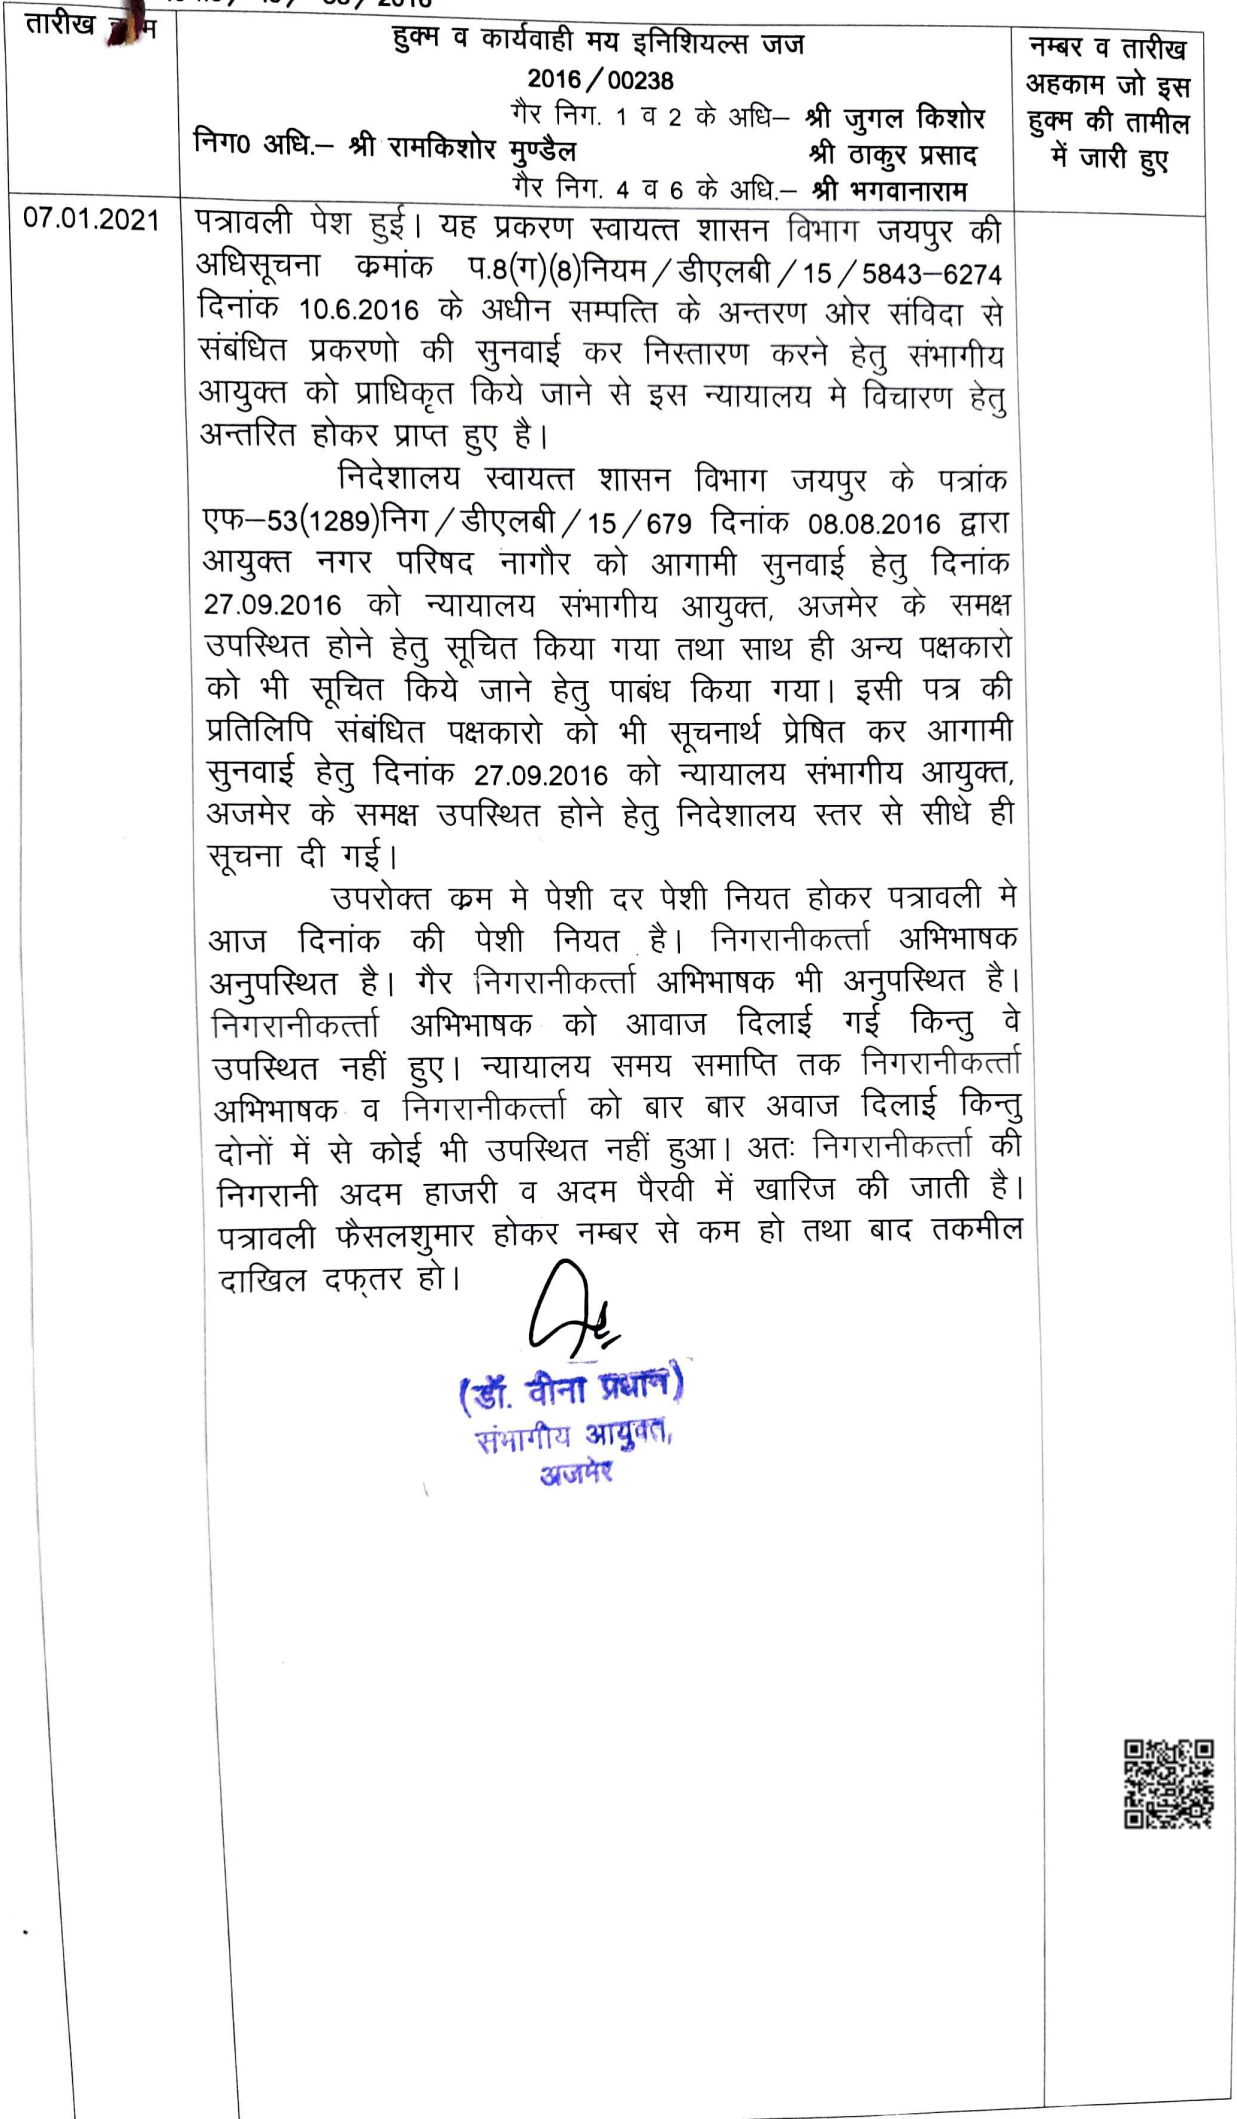 2016
तारीख
हुक्म व कार्यवाही मय इनिशियल्स जज
2016/00238
गैर निग. 1 व 2 के अधि– श्री जुगल किशोर
निग0 अधि.– श्री रामकिशोर मुण्डैल श्री ठाकुर प्रसाद
गैर निग. 4 व 6 के अधि.– श्री भगवानाराम
नम्बर व तारीख
अहकाम जो इस
हुक्म की तामील
में जारी हुए
07.01.2021
पत्रावली पेश हुई। यह प्रकरण स्वायत्त शासन विभाग जयपुर की
अधिसूचना क्रमांक प.8(ग)(8)नियम/डीएलबी/15/5843–6274
दिनांक 10.6.2016 के अधीन सम्पत्ति के अन्तरण ओर संविदा से
संबंधित प्रकरणो की सुनवाई कर निस्तारण करने हेतु संभागीय
आयुक्त को प्राधिकृत किये जाने से इस न्यायालय मे विचारण हेतु
अन्तरित होकर प्राप्त हुए है।
निदेशालय स्वायत्त शासन विभाग जयपुर के पत्रांक
एफ–53(1289)निग/डीएलबी/15/679 दिनांक 08.08.2016 द्वारा
आयुक्त नगर परिषद नागौर को आगामी सुनवाई हेतु दिनांक
27.09.2016 को न्यायालय संभागीय आयुक्त, अजमेर के समक्ष
उपस्थित होने हेतु सूचित किया गया तथा साथ ही अन्य पक्षकारो
को भी सूचित किये जाने हेतु पाबंध किया गया। इसी पत्र की
प्रतिलिपि संबंधित पक्षकारो को भी सूचनार्थ प्रेषित कर आगामी
सुनवाई हेतु दिनांक 27.09.2016 को न्यायालय संभागीय आयुक्त,
अजमेर के समक्ष उपस्थित होने हेतु निदेशालय स्तर से सीधे ही
सूचना दी गई।
उपरोक्त क्रम मे पेशी दर पेशी नियत होकर पत्रावली मे
आज दिनांक की पेशी नियत है। निगरानीकर्त्ता अभिभाषक
अनुपस्थित है। गैर निगरानीकर्त्ता अभिभाषक भी अनुपस्थित है।
निगरानीकर्त्ता अभिभाषक को आवाज दिलाई गई किन्तु वे
उपस्थित नहीं हुए। न्यायालय समय समाप्ति तक निगरानीकर्त्ता
अभिभाषक व निगरानीकर्त्ता को बार बार अवाज दिलाई किन्तु
दोनों में से कोई भी उपस्थित नहीं हुआ। अतः निगरानीकर्त्ता की
निगरानी अदम हाजरी व अदम पैरवी में खारिज की जाती है।
पत्रावली फैसलशुमार होकर नम्बर से कम हो तथा बाद तकमील
दाखिल दफ्तर हो।
(डॉ. वीना प्रधान)
संभागीय आयुक्त,
अजमेर